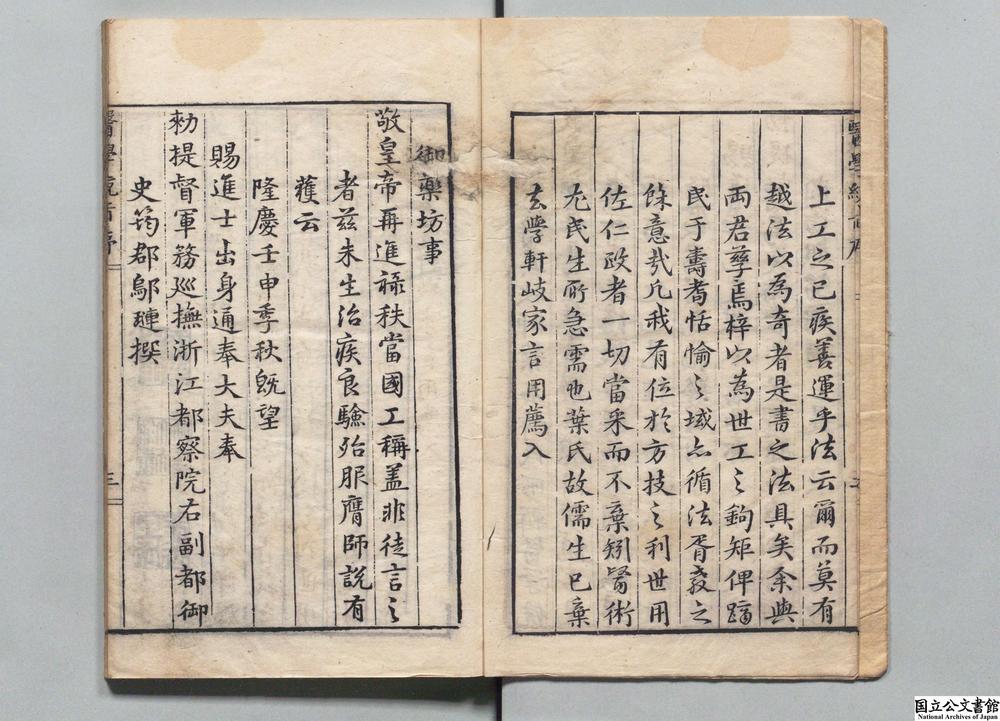 上工之已疾善運乎法云爾而莫有
越法以為奇者是書之法具矣余與
両君孳焉梓以為世工之鉤矩俾躋
民于壽耇恬愉之域亦循法胥教之
餘意㢤凡我有位於方技之利世用
佐仁政者一切當采而不棄矧醫術
尤民生所急需也葉氏故儒生已棄
去學軒岐家言用薦入
御藥坊事
敬皇帝再進祿秩當國工稱盖非徒言之
者兹朱生治疾良驗殆服膺師説有
獲云
隆慶壬申季秋既望
賜進士出身通奉大夫奉
勑提督軍務廵撫浙江都察院右副都御
史筠郡鄔璉撰
三
国立公文書館
National Archives of Japan